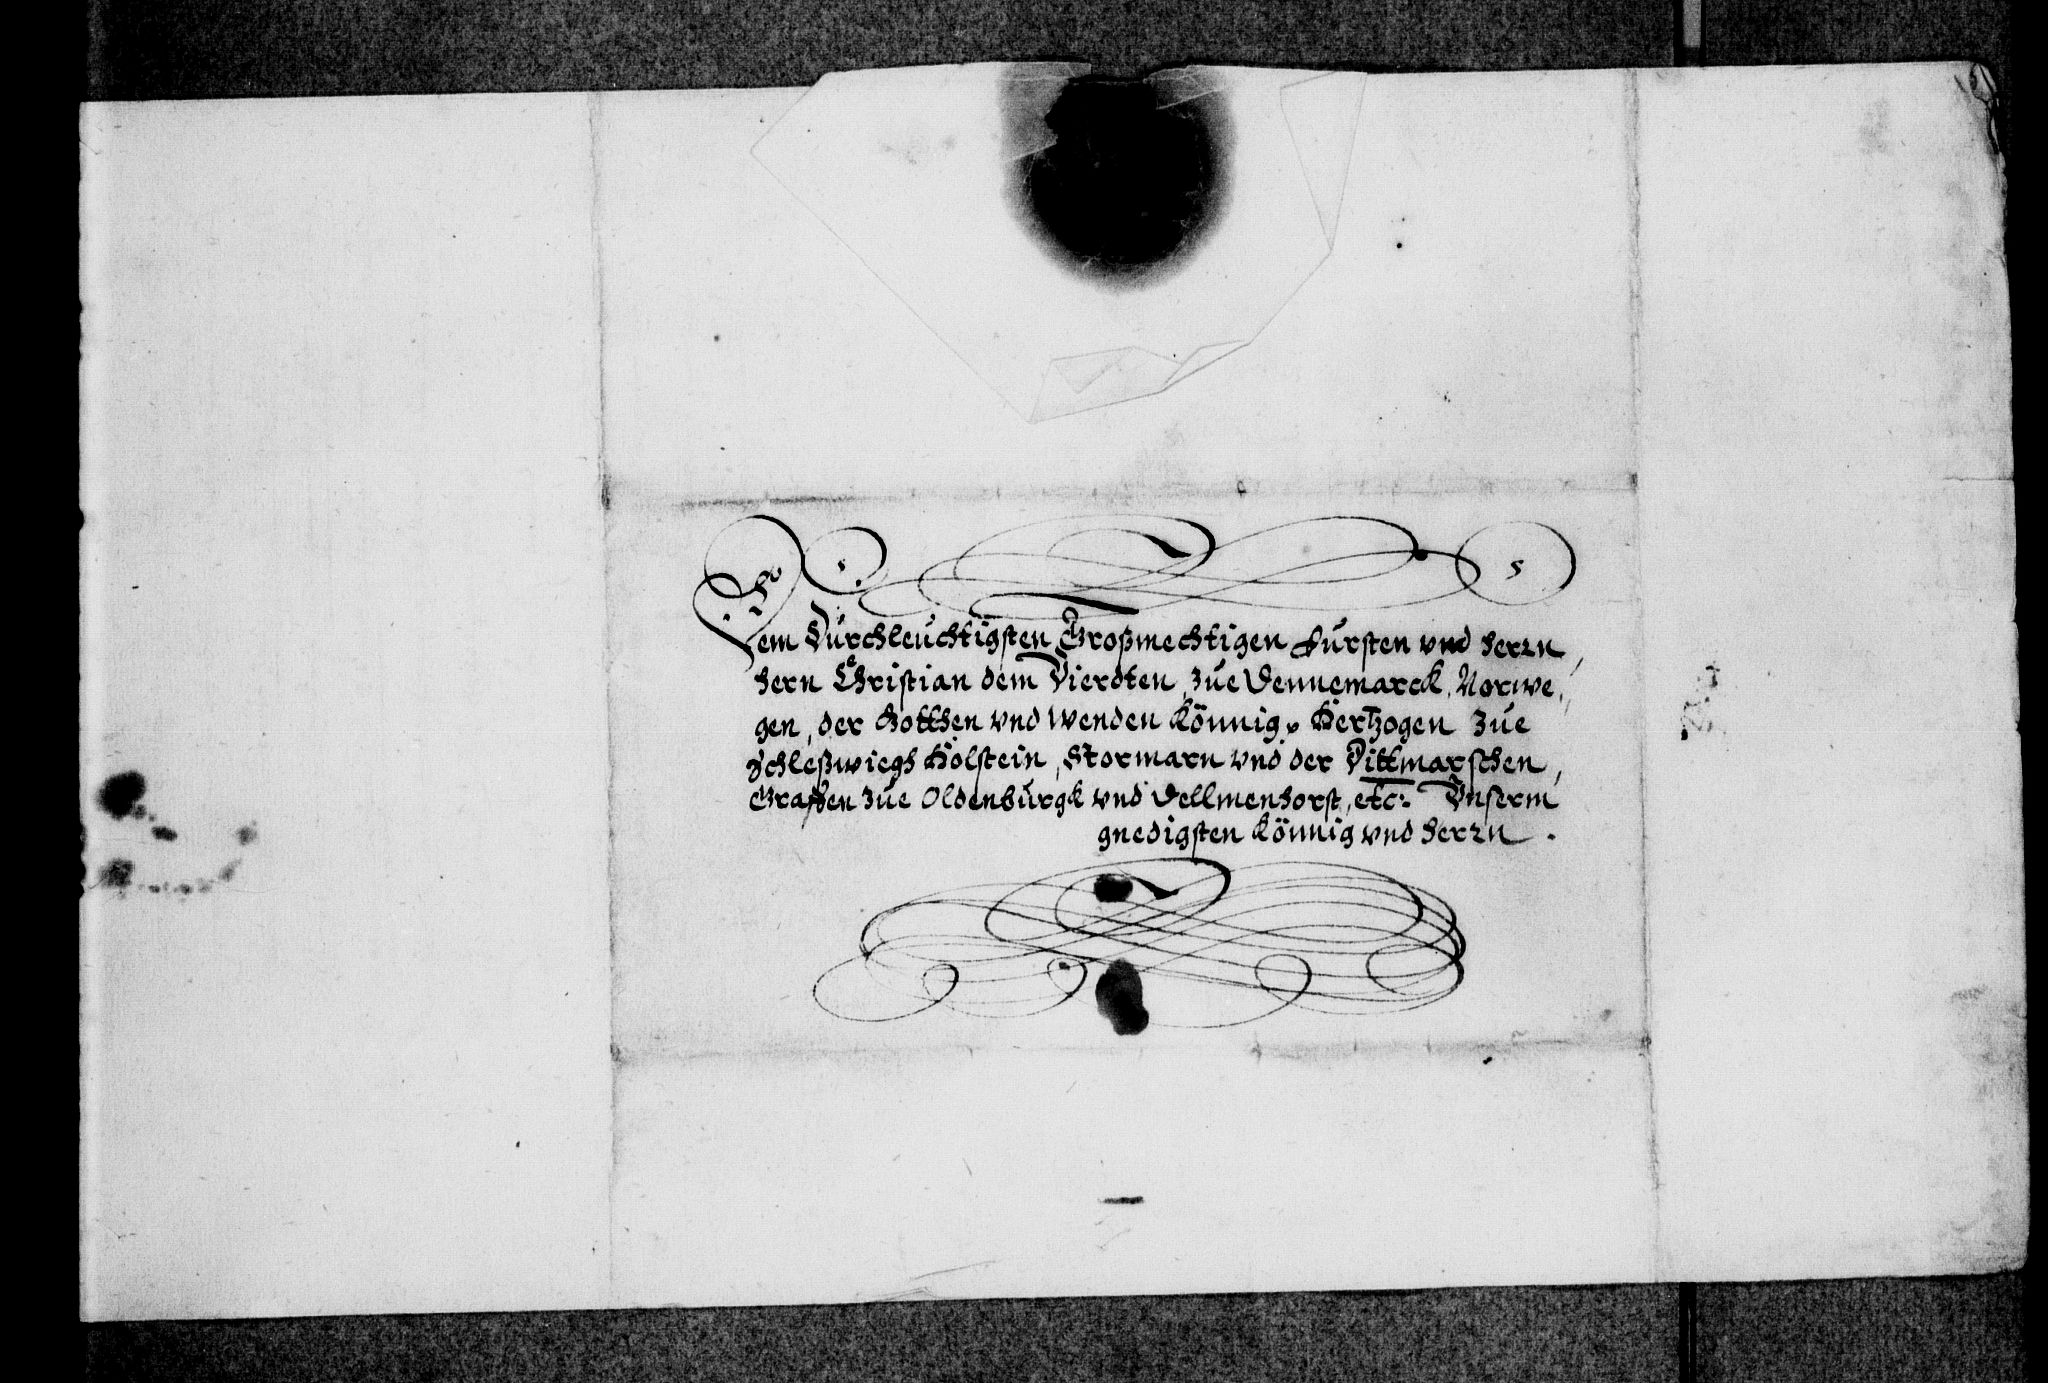 Dem Durchleuchtigsten Großmechtigen Fursten vnd herrn,
hern Christian dem Vierdten, zue Dennemarck, Norwe,
gen, der Gotthen vnd Wenden Könnig, Hertzogen zue
Schleßwiegh Holstein, Stormarn vnd der Dittmarschen,
Graffen zue Oldenburgk vnd Dellmenhorst, etc: Vnserm
gnedigsten Könnig vnd herrn.